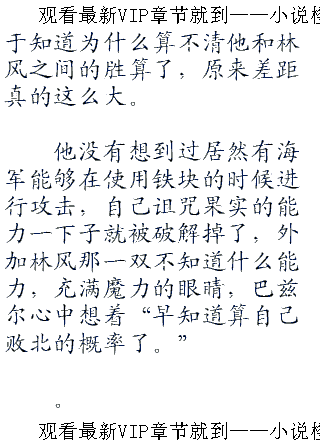 观看最新VIP章节就到——小说
于知道为什么算不清他和林
风之间的胜算了，原来差距
真的这么大。
他没有想到过居然有海
军能够在使用铁块的时候进
行攻击，自己诅咒果实的能
力一下子就被破解掉了，外
加林风那一双不知道什么能
力，充满魔力的眼睛，巴兹
尔心中想着“早知道算自己
败北的概率了。”
。
观看最新VIP章节就到——小说